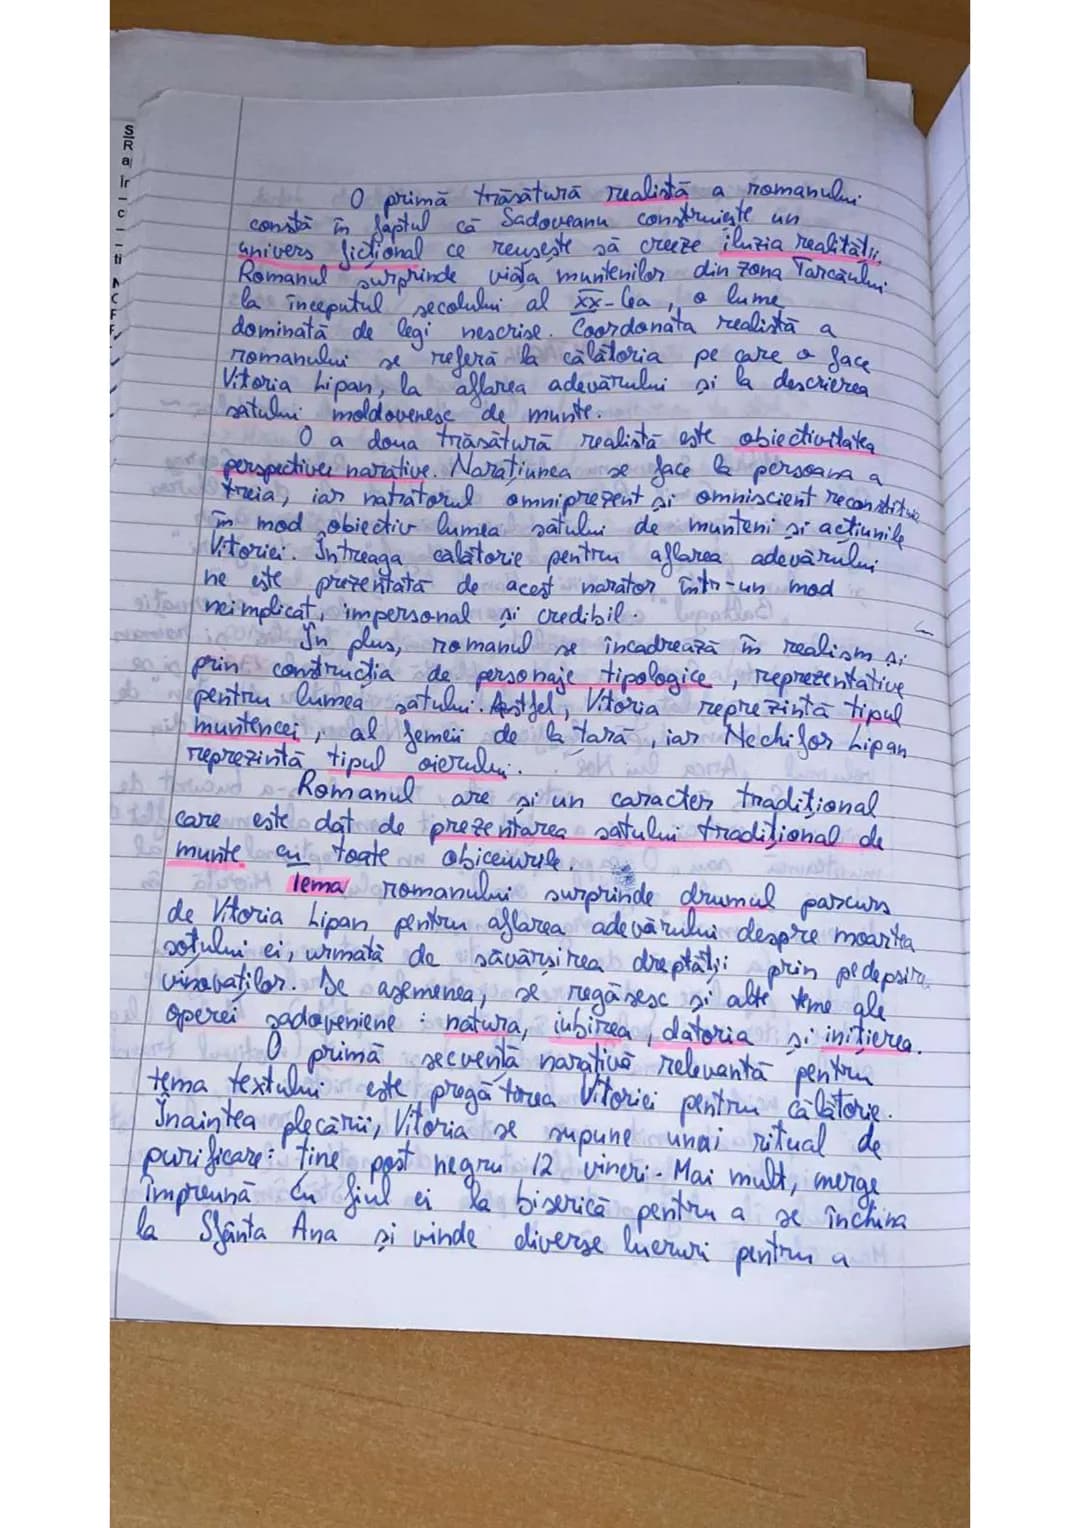 O primă trăsătură realistă a romanului
constă în faptul că Sadoveanu construiește un
univers ficțional ce reușește să creeze iluzia realității.
Romanul surprinde viața muntenilor din zona Tarcăului
la începutul secolului al XX-lea, o lume
dominată de legi nescrise. Coordonata realistă a
romanului se referă la călătoria pe care o face
Vitoria Lipan, la aflarea adevărului și la descrierea
satului moldovenesc de munte.
O a doua trăsătură realistă este obiectivitatea
perspectivei narative. Narațiunea se face la persoana a
treia, iar natratorul omniprezent și omniscient reconstituie
în mod obiectiv lumea satului de munteni și acțiunile
Vitoriei. Întreaga calătorie pentru aflarea adevărului
ne este prezentată de acest narator într-un mod
neimplicat, impersonal și credibil.
În plus, romanul se încadrează în realism și
prin construcția de personaje tipologice, reprezentative
pentru lumea satului. Astfel, Vitoria reprezintă tipul
muntencei, al femeii de la țară, iar Nechifor Lipan
reprezintă tipul oierului.
Romanul are și un caracter tradițional
care este dat de prezentarea satului tradițional de
munte cu toate obiceiurile.
Tema romanului surprinde drumul parcurs
de Vitoria Lipan pentru aflarea adevărului despre moartea
soțului ei, urmată de săvârșirea dreptății prin pedepsirea
vinovaților. De asemenea, se regăsesc și alte teme ale
operei sadoveniene: natura, iubirea, datoria și inițierea.
O primă secvență narativă relevantă pentru
tema textului este pregătirea Vitoriei pentru călătorie.
Înaintea plecării, Vitoria se supune unui ritual de
purificare: ține post negru 12 vineri. Mai mult, merge
împreună cu fiul ei la biserică pentru a se închina
la Sfânta Ana și vinde diverse lucruri pentru a